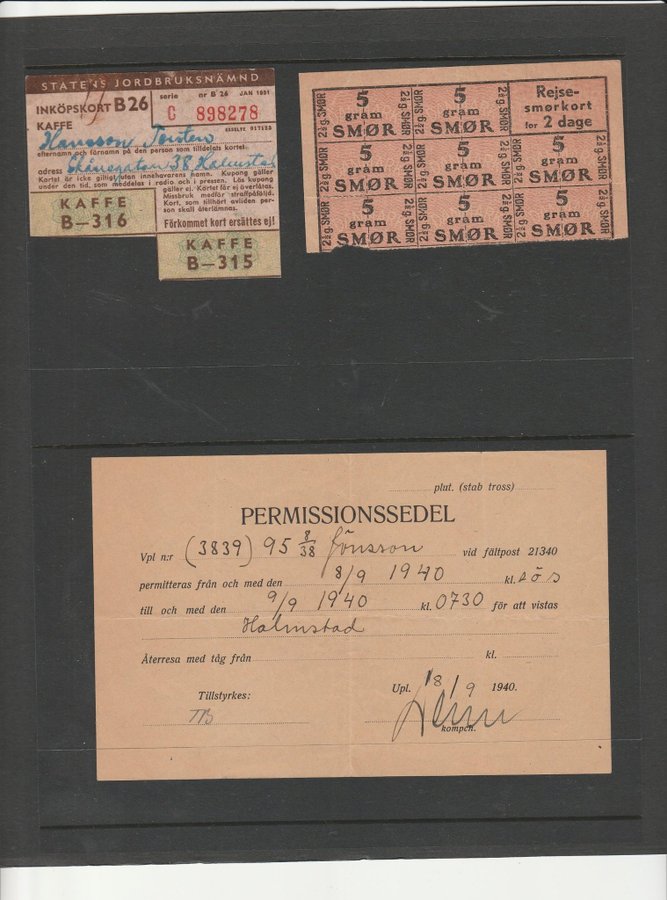 STATENS JORDBRUKSNÄMND
INKÖPSKORT B26
KAFFE
serie nr B 26 JAN 1951
C 898278
ESSELTE 017123
Hansson Torsten
efternamn och förnamn på den person som tilldelats kortet.
adress Skånegatan 38 Halmstad
Kortet är icke giltigt utan innehavarens namn. Kupong gäller
under den tid, som meddelas i radio och i pressen. Lös kupong
gäller ej. Kortet får ej överlåtas.
Missbruk medför straffpåföljd.
Kort, som tillhört avliden person skall återlämnas.
Förkommet kort ersättes ej!
KAFFE
B—316
KAFFE
B—315
2½g. SMØR 5 gram SMØR 2½g SMØR 5 gram SMØR 2½g SMØR
Rejse-
smørkort
for 2 dage
2½g. SMØR 5 gram SMØR 2½g SMØR 5 gram SMØR 2½g SMØR 5 gram SMØR 2½g. SMØR
2½g. SMØR 5 gram SMØR 2½g SMØR 5 gram SMØR 2½g SMØR 5 gram SMØR 2½g. SMØR
plut. (stab tross)
PERMISSIONSSEDEL
Vpl n:r (3839) 95 8/38 Jönsson vid fältpost 21340
permitteras från och med den 8/9 1940 kl.
till och med den 9/9 1940 kl. 0730 för att vistas
Halmstad
Återresa med tåg från kl.
Tillstyrkes: Upl. 8/9 1940.
kompch.